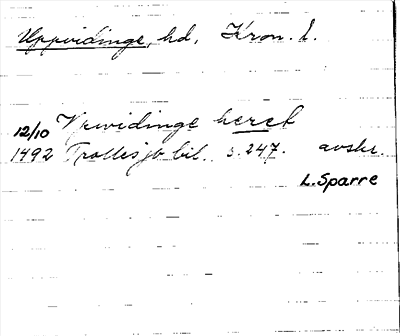 Uppvidinge, hd, Kron. l.
12/10 Vpwidinge heret
1492 Trolles jb bil. s. 247. avskr.
L. Sparre